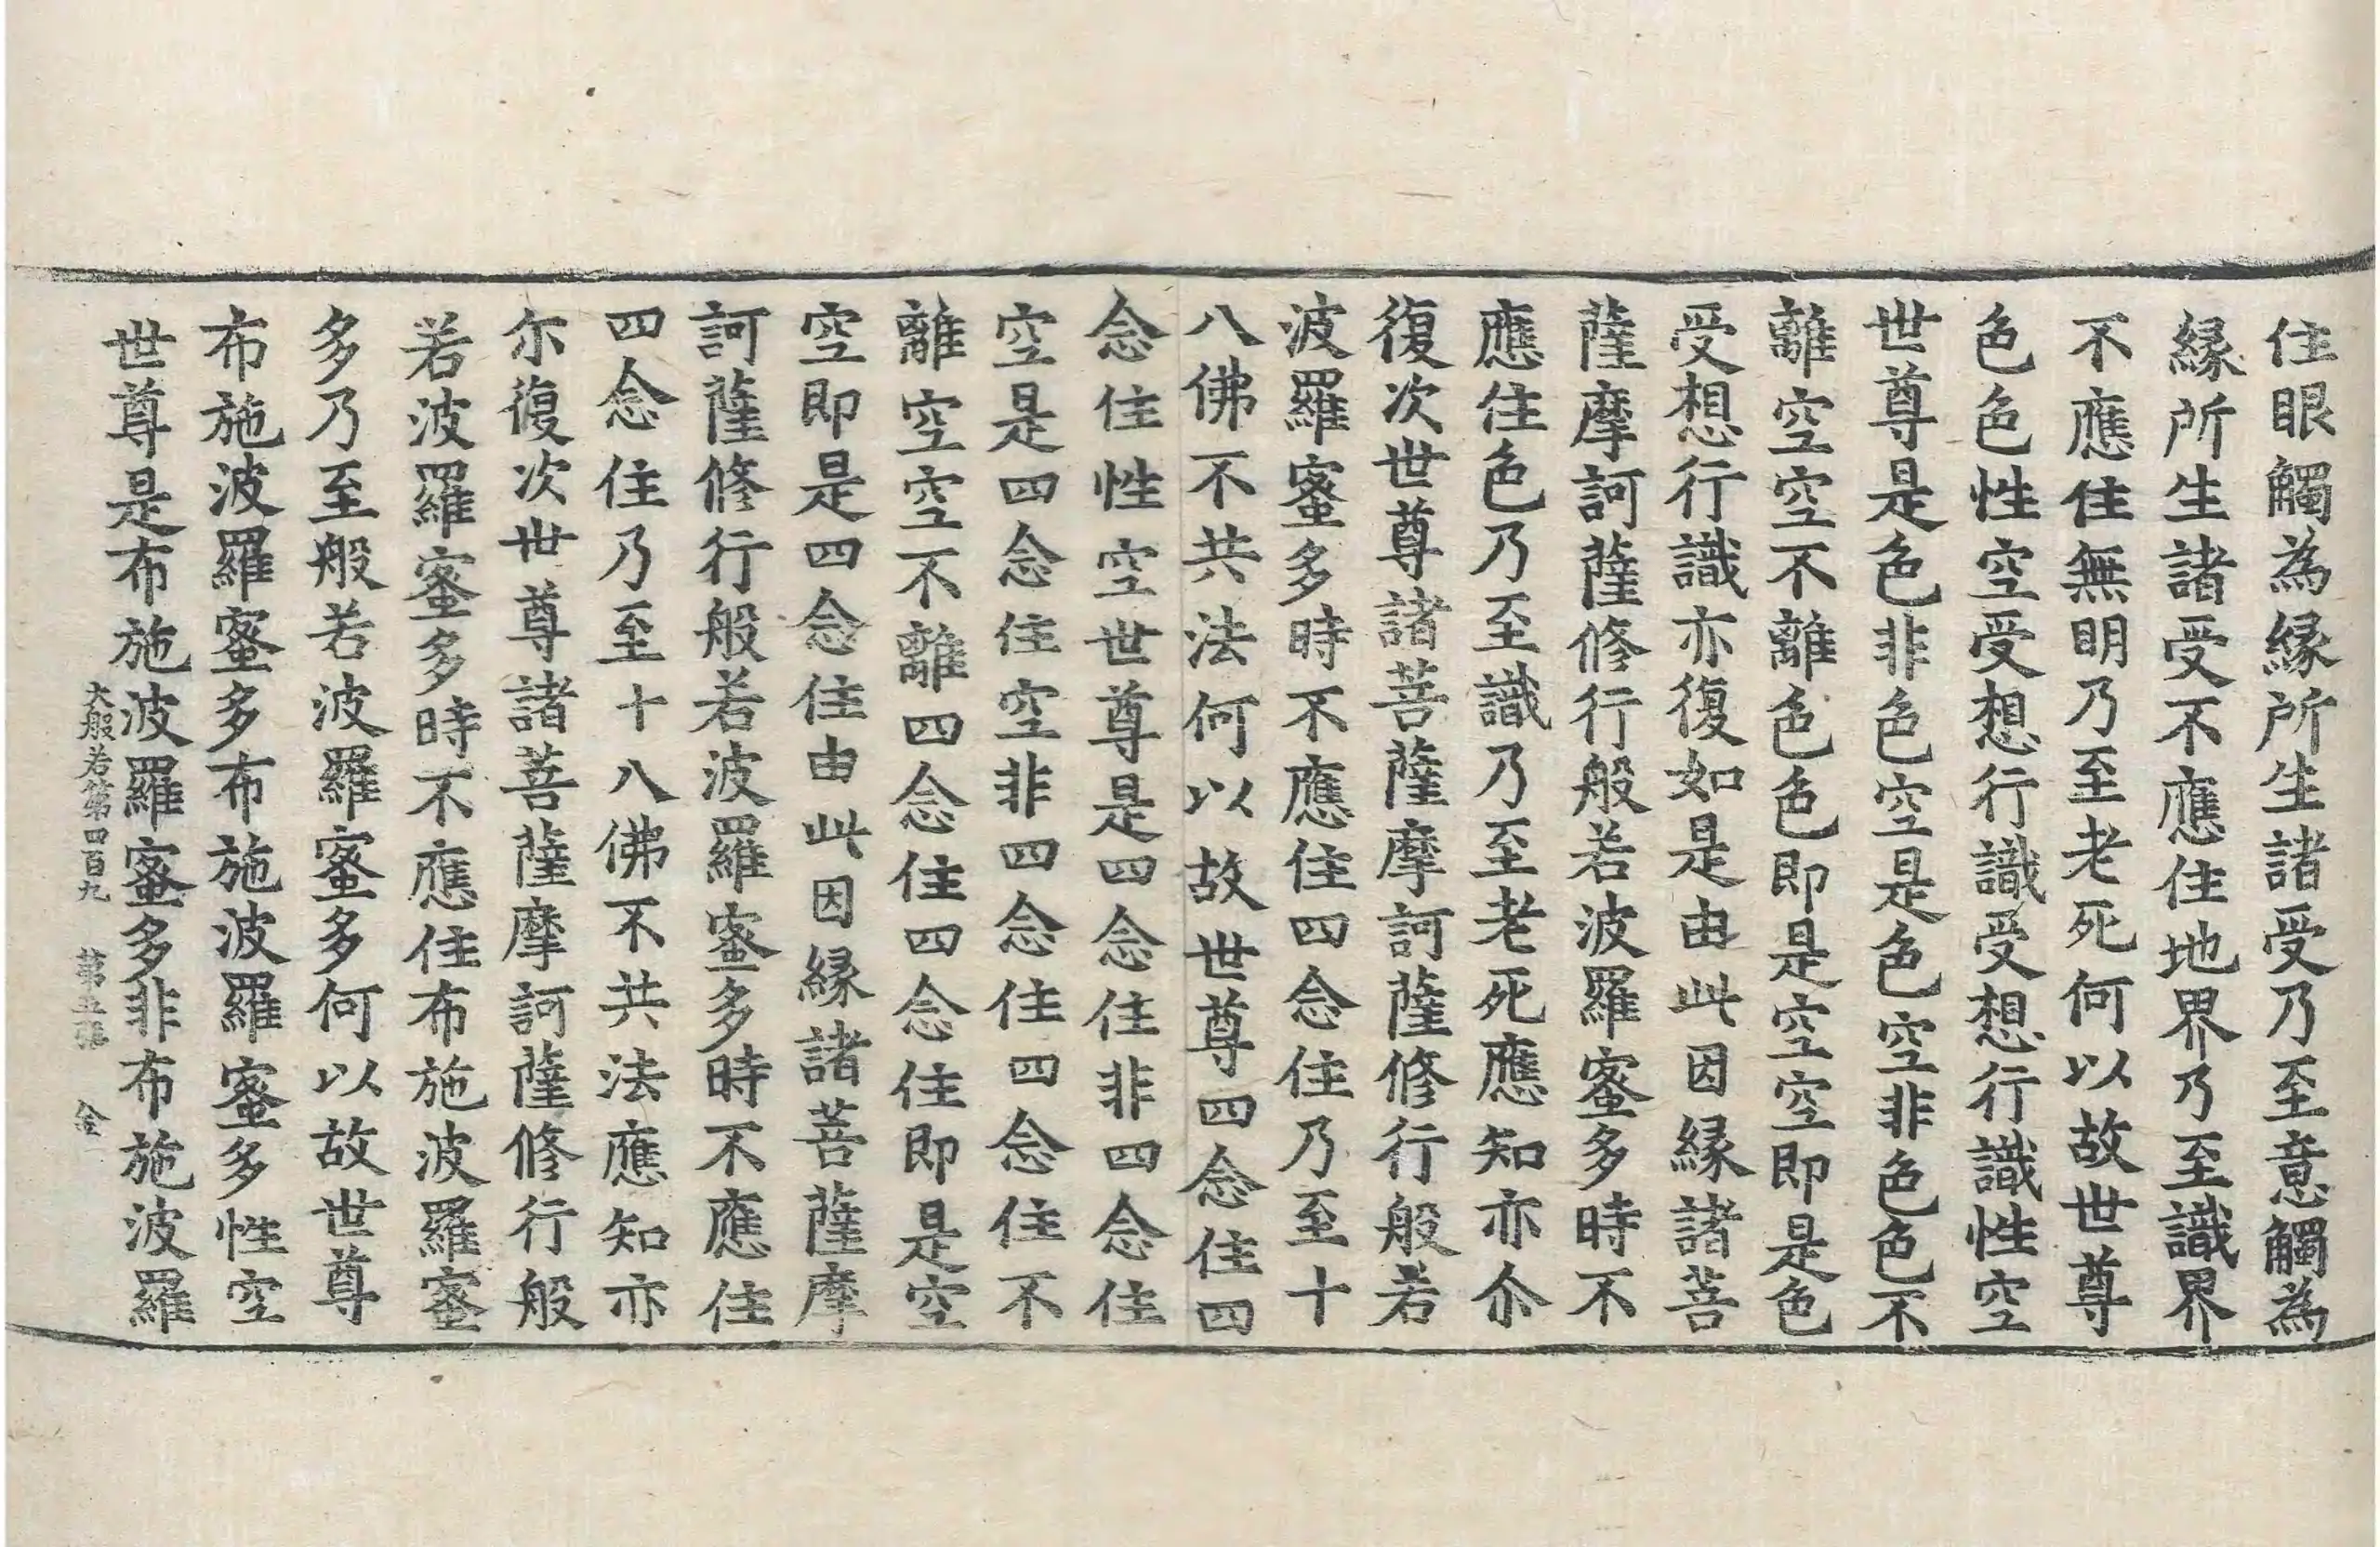 住眼觸為縁所生諸受乃至意觸為
縁所生諸受不應住地界乃至識界
不應住無明乃至老死何以故世尊
色色性空受想行識受想行識性空
世尊是色非色空是色空非色色不
離空空不離色色即是空空即是色
受想行識亦復如是由此因縁諸菩
薩摩訶薩修行般若波羅蜜多時不
應住色乃至識乃至老死應知亦尒
復次世尊諸菩薩摩訶薩修行般若
波羅蜜多時不應住四念住乃至十
八佛不共法何以故世尊四念住四
念住性空世尊是四念住非四念住
空是四念住空非四念住四念住不
離空空不離四念住四念住即是空
空即是四念住由此因縁諸菩薩摩
訶薩修行般若波羅蜜多時不應住
四念住乃至十八佛不共法應知亦
尔復次世尊諸菩薩摩訶薩修行般
若波羅蜜多時不應住布施波羅蜜
多乃至般若波羅蜜多何以故世尊
布施波羅蜜多布施波羅蜜多性空
世尊是布施波羅蜜多非布施波羅
大般若第四百九 第五張 金